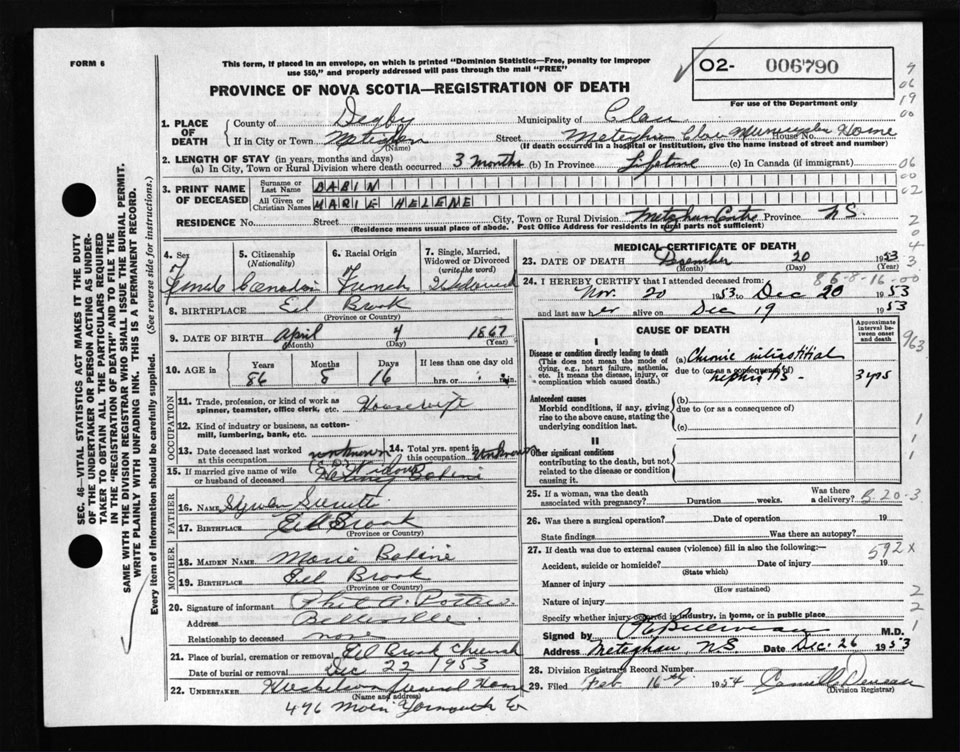 FORM 6
This form, if placed in an envelope, on which is printed "Dominion Statistics—Free, penalty for improper
use $50," and properly addressed will pass through the mail "FREE"
O2- 006790
For use of the Department only
PROVINCE OF NOVA SCOTIA—REGISTRATION OF DEATH
1. PLACE OF DEATH
County of Digby Municipality of Clare
If in City or Town (Name) Street Meteghan Clare Home House No.
(If death occurred in a hospital or institution, give the name instead of street and number)
2. LENGTH OF STAY (in years, months and days)
(a) In City, Town or Rural Division where death occurred 3 months (b) In Province Lifetime (c) In Canada (if immigrant)
3. PRINT NAME OF DECEASED
Surname or Last Name BABIN
All Given or Christian Names MARIE HELENE
RESIDENCE No. Street City, Town or Rural Division Meteghan Centre Province N.S.
(Residence means usual place of abode. Post Office Address for residents in rural parts not sufficient)
4. Sex Female
5. Citizenship (Nationality) Canadian
6. Racial Origin French
7. Single, Married, Widowed or Divorced (write the word) Widowed
8. BIRTHPLACE Eel Brook
(Province or Country)
9. DATE OF BIRTH April 4 1867
(Month) (Day) (Year)
10. AGE in Years Months Days If less than one day old
86 8 16 hrs. or min.
OCCUPATION
11. Trade, profession, or kind of work as
spinner, teamster, office clerk, etc. Housewife
12. Kind of industry or business, as cotton-
mill, lumbering, bank, etc.
13. Date deceased last worked at this occupation unknown
14. Total yrs. spent in this occupation unknown
15. If married give name of wife
or husband of deceased
FATHER
16. NAME Surette
17. BIRTHPLACE Eel Brook
(Province or Country)
MOTHER
18. MAIDEN NAME Marie Babine
19. BIRTHPLACE Eel Brook
(Province or Country)
20. Signature of informant Phil A. Pottier
Address Belleville
Relationship to deceased none
21. Place of burial, cremation or removal Eel Brook Church
Date of burial or removal Dec 22 1953
22. UNDERTAKER Funeral Home
(Name and address)
476 Main Yarmouth Co
MEDICAL CERTIFICATE OF DEATH
23. DATE OF DEATH December 20 1953
(Month) (Day) (Year)
86-8-16-00
24. I HEREBY CERTIFY that I attended deceased from:
Nov. 20 1953 to Dec 20 1953
and last saw her alive on Dec 19 1953
CAUSE OF DEATH
Approximate interval between onset and death
I
Disease or condition directly leading to death
(This does not mean the mode of dying, e.g., heart failure, asthenia, etc. It means the disease, injury, or complication which caused death.)
(a) Chronic interstitial
due to (or as a consequence of)
nephritis - 3 yrs
Antecedent causes
Morbid conditions, if any, giving rise to the above cause, stating the underlying condition last.
(b)
due to (or as a consequence of)
(c)
II
Other significant conditions
contributing to the death, but not related to the disease or condition causing it.
25. If a woman, was the death associated with pregnancy? Duration weeks. Was there a delivery? B.20-3
26. Was there a surgical operation? Date of operation 19
State findings Was there an autopsy?
27. If death was due to external causes (violence) fill in also the following:—
592 x
Accident, suicide or homicide? Date of injury 19
(State which)
Manner of injury
(How sustained)
Nature of injury
Specify whether injury occurred in industry, in home, or in public place
Signed by M.D.
Address Meteghan, NS Date Dec. 26 1953
28. Division Registrar's Record Number
29. Filed Feb 16th 1954 Camille
(Division Registrar)
SEC. 46—VITAL STATISTICS ACT MAKES IT THE DUTY
OF THE UNDERTAKER OR PERSON ACTING AS UNDER-
TAKER TO OBTAIN ALL THE PARTICULARS REQUIRED
IN THE "REGISTRATION OF DEATH" AND TO FILE THE
SAME WITH THE DIVISION REGISTRAR WHO SHALL ISSUE THE BURIAL PERMIT.
WRITE PLAINLY WITH UNFADING INK. THIS IS A PERMANENT RECORD.
Every item of Information should be carefully supplied. (See reverse side for instructions.)
06
19
00
06
00
02
2
0
4
3
3
963
1
1
1
2
2
1